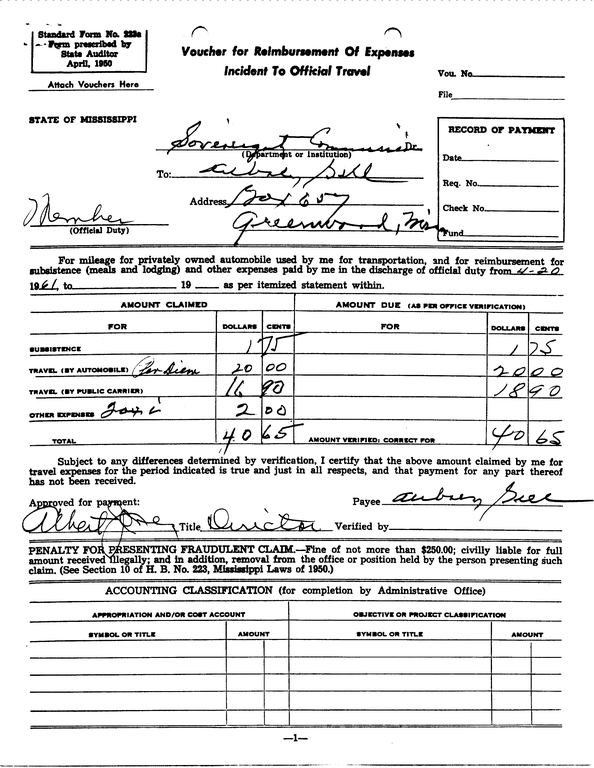 Standard Form No. 223a
Form prescribed by
State Auditor
April, 1950
Attach Vouchers Here
Voucher for Reimbursement Of Expenses
Incident To Official Travel
Vou. No.
File
STATE OF MISSISSIPPI
RECORD OF PAYMENT
Date
Req. No.
Check No.
Fund
Sovereignty Commission Dr.
(Department or Institution)
To: Aubrey Bell
Address Box 657
Greenwood, Miss
Member
(Official Duty)
For mileage for privately owned automobile used by me for transportation, and for reimbursement for
subsistence (meals and lodging) and other expenses paid by me in the discharge of official duty from 4-20
1961, to 19 as per itemized statement within.
AMOUNT CLAIMED AMOUNT DUE (AS PER OFFICE VERIFICATION)
FOR DOLLARS CENTS FOR DOLLARS CENTS
SUBSISTENCE 1 75 1 75
TRAVEL (BY AUTOMOBILE) Per Diem 20 00 20 00
TRAVEL (BY PUBLIC CARRIER) 16 90 18 90
OTHER EXPENSES Taxi 2 00
TOTAL 40 65 AMOUNT VERIFIED; CORRECT FOR 40 65
Subject to any differences determined by verification, I certify that the above amount claimed by me for
travel expenses for the period indicated is true and just in all respects, and that payment for any part thereof
has not been received.
Approved for payment: Payee Aubrey Bell
Albert Jones Title Director Verified by
PENALTY FOR PRESENTING FRAUDULENT CLAIM.—Fine of not more than $250.00; civilly liable for full
amount received illegally; and in addition, removal from the office or position held by the person presenting such
claim. (See Section 10 of H. B. No. 223, Mississippi Laws of 1950.)
ACCOUNTING CLASSIFICATION (for completion by Administrative Office)
APPROPRIATION AND/OR COST ACCOUNT OBJECTIVE OR PROJECT CLASSIFICATION
SYMBOL OR TITLE AMOUNT SYMBOL OR TITLE AMOUNT
—1—